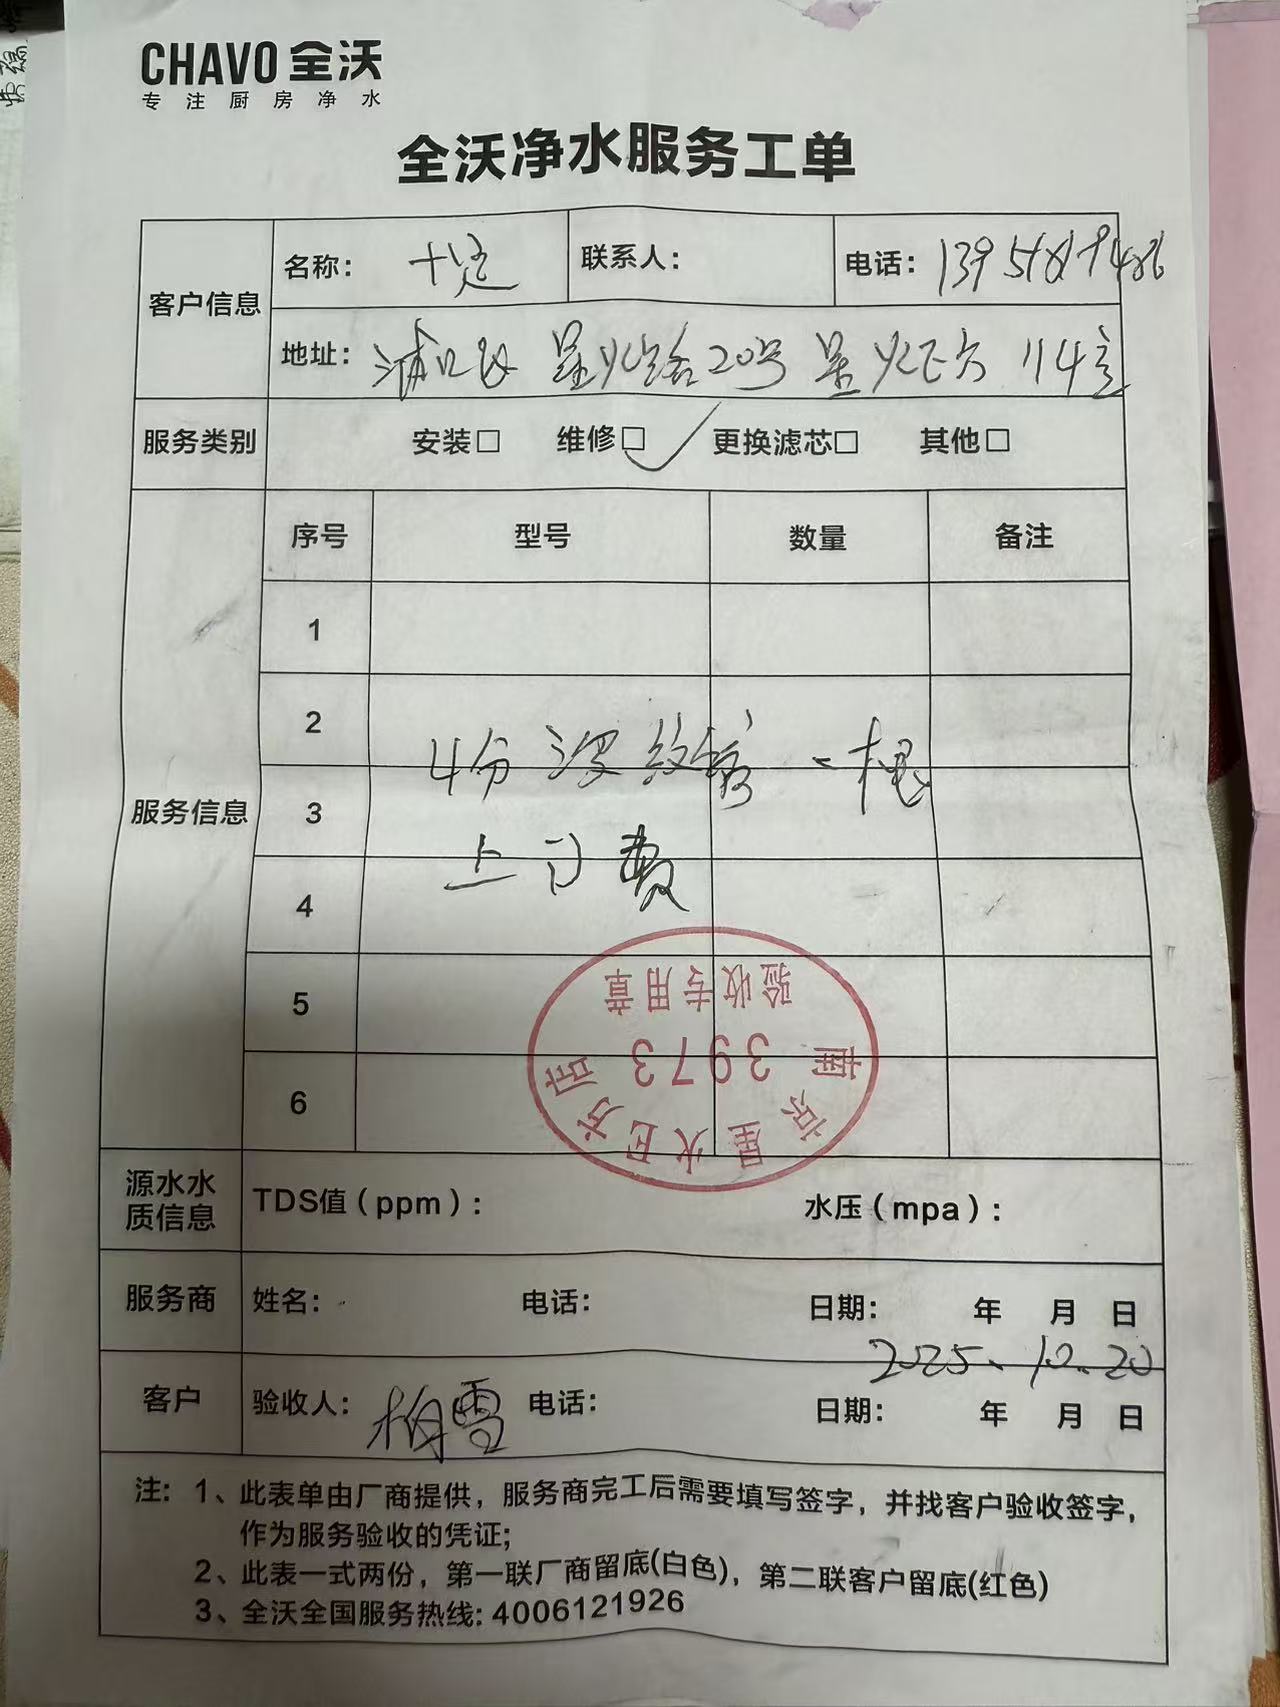 CHAVO 全沃
专注厨房净水
全沃净水服务工单
客户信息
名称：
联系人：
电话：
地址：浦口区 星火路20号 星火E方 114室
服务类别
安装□ 维修□ ✓ 更换滤芯□ 其他□
服务信息
序号 型号 数量 备注
1
2
4分 波纹管 一根
3
上门费
4
验收专用章
5
3973
星火E方店
6
源水水质信息
TDS值（ppm）： 水压（mpa）：
服务商 姓名： 电话： 日期： 年 月 日
2025.10.20
客户 验收人：柏雪 电话： 日期： 年 月 日
注：1、此表单由厂商提供，服务商完工后需要填写签字，并找客户验收签字，
作为服务验收的凭证；
2、此表一式两份，第一联厂商留底(白色)，第二联客户留底(红色)
3、全沃全国服务热线：4006121926